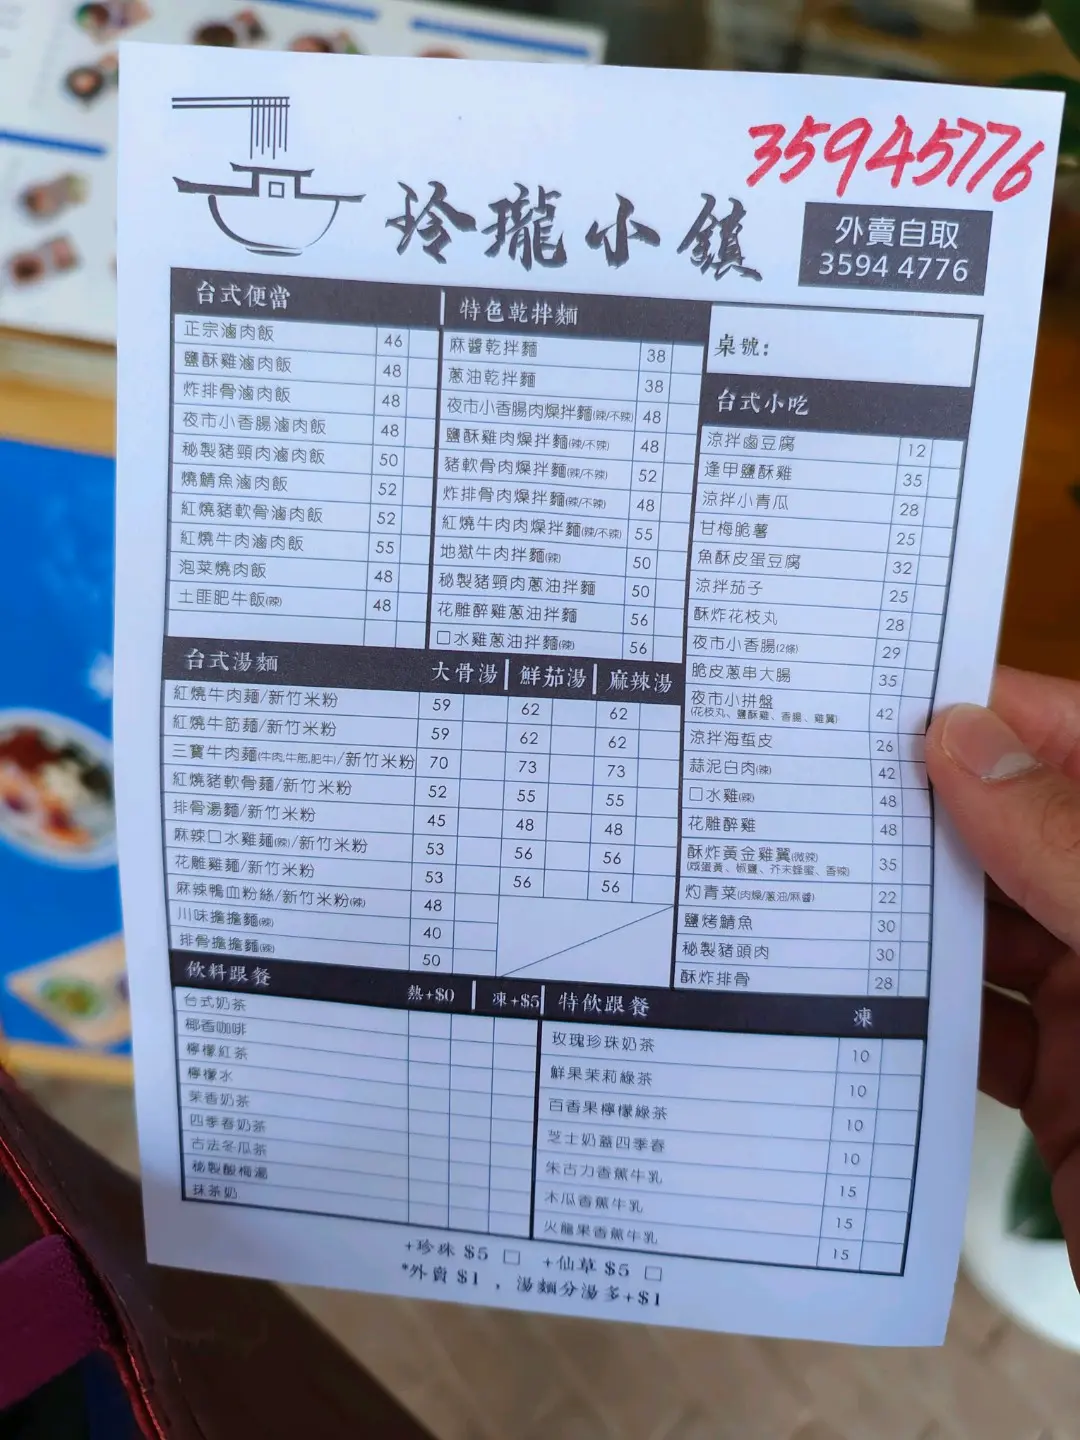 35945776
玲瓏小鎮
外賣自取
3594 4776
台式便當
正宗滷肉飯 46
鹽酥雞滷肉飯 48
炸排骨滷肉飯 48
夜市小香腸滷肉飯 48
秘製豬頸肉滷肉飯 50
燒鯖魚滷肉飯 52
紅燒豬軟骨滷肉飯 52
紅燒牛肉滷肉飯 55
泡菜燒肉飯 48
土匪肥牛飯(辣) 48
特色乾拌麵
麻醬乾拌麵 38
蔥油乾拌麵 38
夜市小香腸肉燥拌麵(辣/不辣) 48
鹽酥雞肉燥拌麵(辣/不辣) 48
豬軟骨肉燥拌麵(辣/不辣) 52
炸排骨肉燥拌麵(辣/不辣) 48
紅燒牛肉肉燥拌麵(辣/不辣) 55
地獄牛肉拌麵(辣) 50
秘製豬頸肉蔥油拌麵 50
花雕醉雞蔥油拌麵 56
口水雞蔥油拌麵(辣) 56
桌號:
台式小吃
涼拌鹵豆腐 12
逢甲鹽酥雞 35
涼拌小青瓜 28
甘梅脆薯 25
魚酥皮蛋豆腐 32
涼拌茄子 25
酥炸花枝丸 28
夜市小香腸(2條) 29
脆皮蔥串大腸 35
夜市小拼盤 42
(花枝丸、鹽酥雞、香腸、雞翼)
涼拌海蜇皮 26
蒜泥白肉(辣) 42
口水雞(辣) 48
花雕醉雞 48
酥炸黃金雞翼(微辣) 35
(咸蛋黃、椒鹽、芥末蜂蜜、香辣)
灼青菜(肉燥/蔥油/麻醬) 22
鹽烤鯖魚 30
秘製豬頭肉 30
酥炸排骨 28
台式湯麵 大骨湯 鮮茄湯 麻辣湯
紅燒牛肉麵/新竹米粉 59 62 62
紅燒牛筋麵/新竹米粉 59 62 62
三寶牛肉麵(牛肉,牛筋,肥牛)/新竹米粉 70 73 73
紅燒豬軟骨麵/新竹米粉 52 55 55
排骨湯麵/新竹米粉 45 48 48
麻辣口水雞麵(辣)/新竹米粉 53 56 56
花雕雞麵/新竹米粉 53 56 56
麻辣鴨血粉絲/新竹米粉(辣) 48
川味擔擔麵(辣) 40
排骨擔擔麵(辣) 50
飲料跟餐 熱+$0 凍+$5
台式奶茶
椰香咖啡
檸檬紅茶
檸檬水
茉香奶茶
四季春奶茶
古法冬瓜茶
秘製酸梅湯
抹茶奶
特飲跟餐 凍
玫瑰珍珠奶茶 10
鮮果茉莉綠茶 10
百香果檸檬綠茶 10
芝士奶蓋四季春 10
朱古力香蕉牛乳 15
木瓜香蕉牛乳 15
火龍果香蕉牛乳 15
+珍珠 $5 □ +仙草 $5 □
*外賣 $1 , 湯麵分湯多+$1